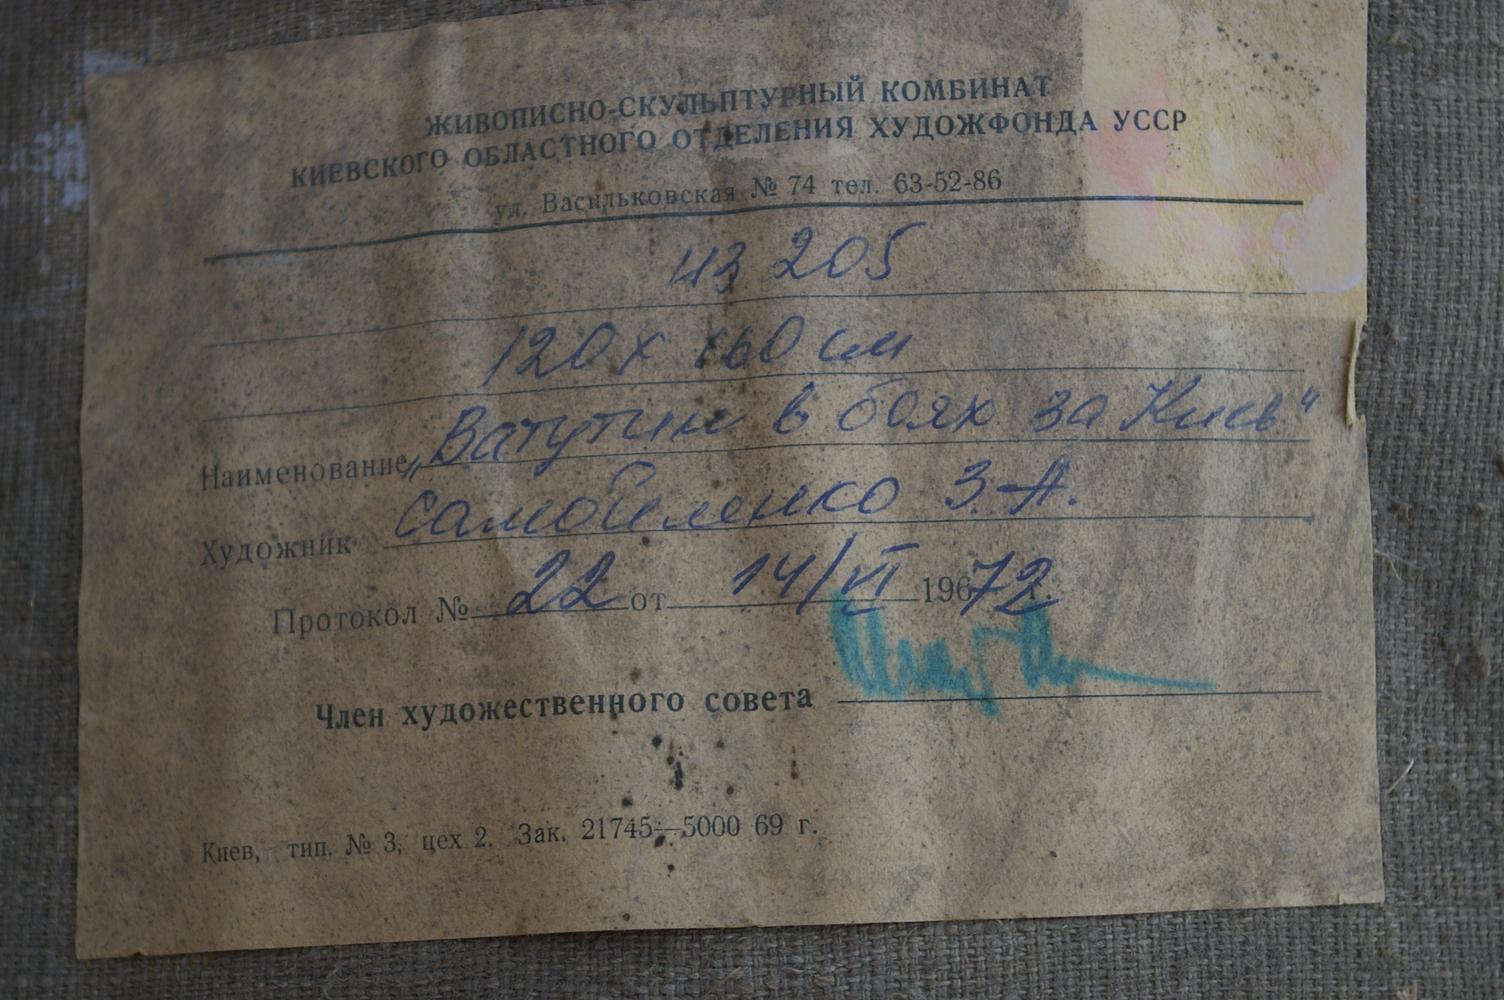 ЖИВОПИСНО-СКУЛЬПТУРНЫЙ КОМБИНАТ
КИЕВСКОГО ОБЛАСТНОГО ОТДЕЛЕНИЯ ХУДОЖФОНДА УССР
ул. Васильковская № 74 тел. 63-52-86
205
120 х 160 см
Наименование „Ватутин в боях за Киев"
Художник З. А.
Протокол № 22 от 14/VI 19672 г.
Член художественного совета
Киев, тип. № 3, цех 2. Зак. 21745—5000 69 г.